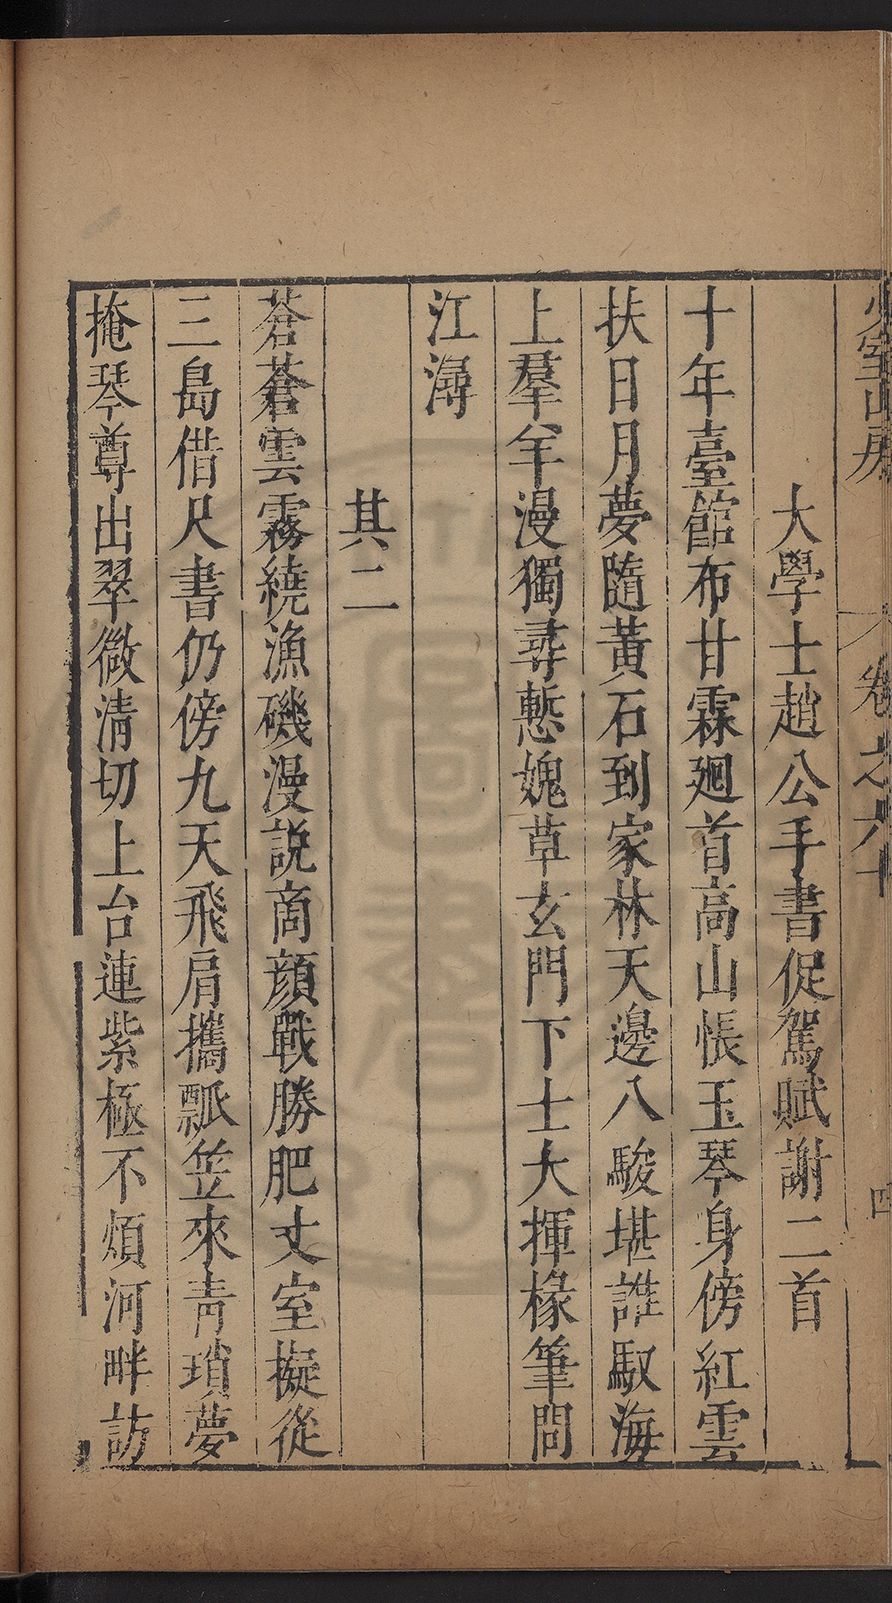 少室山房 卷之六十 四
大學士趙公手書促駕賦謝二首
十年臺館布甘霖廻首高山悵玉琴身傍紅雲
扶日月夢隨黃石到家林天邊八駿堪誰馭海
上羣羊漫獨尋慙媿草玄門下士大揮椽筆問
江潯
其二
蒼蒼雲霧繞漁磯漫説商顔戰勝肥丈室擬從
三島借尺書仍傍九天飛肩攜瓢笠來青瑣夢
掩琴尊出翠微清切上台連紫極不煩河畔訪